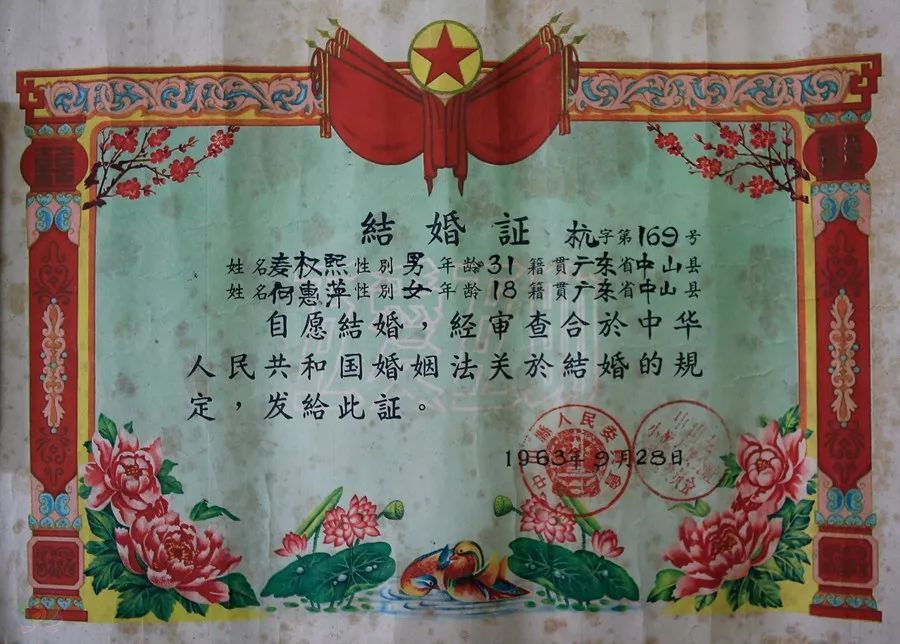 結婚証 杭字第169号
姓名麦权熙性別男年龄31籍貫广东省中山县
姓名何惠萍性別女年龄18籍貫广东省中山县
自愿結婚，経审查合於中华
人民共和国婚姻法关於結婚的規
定，发給此証。
中山縣人民委員會
1963年9月28日